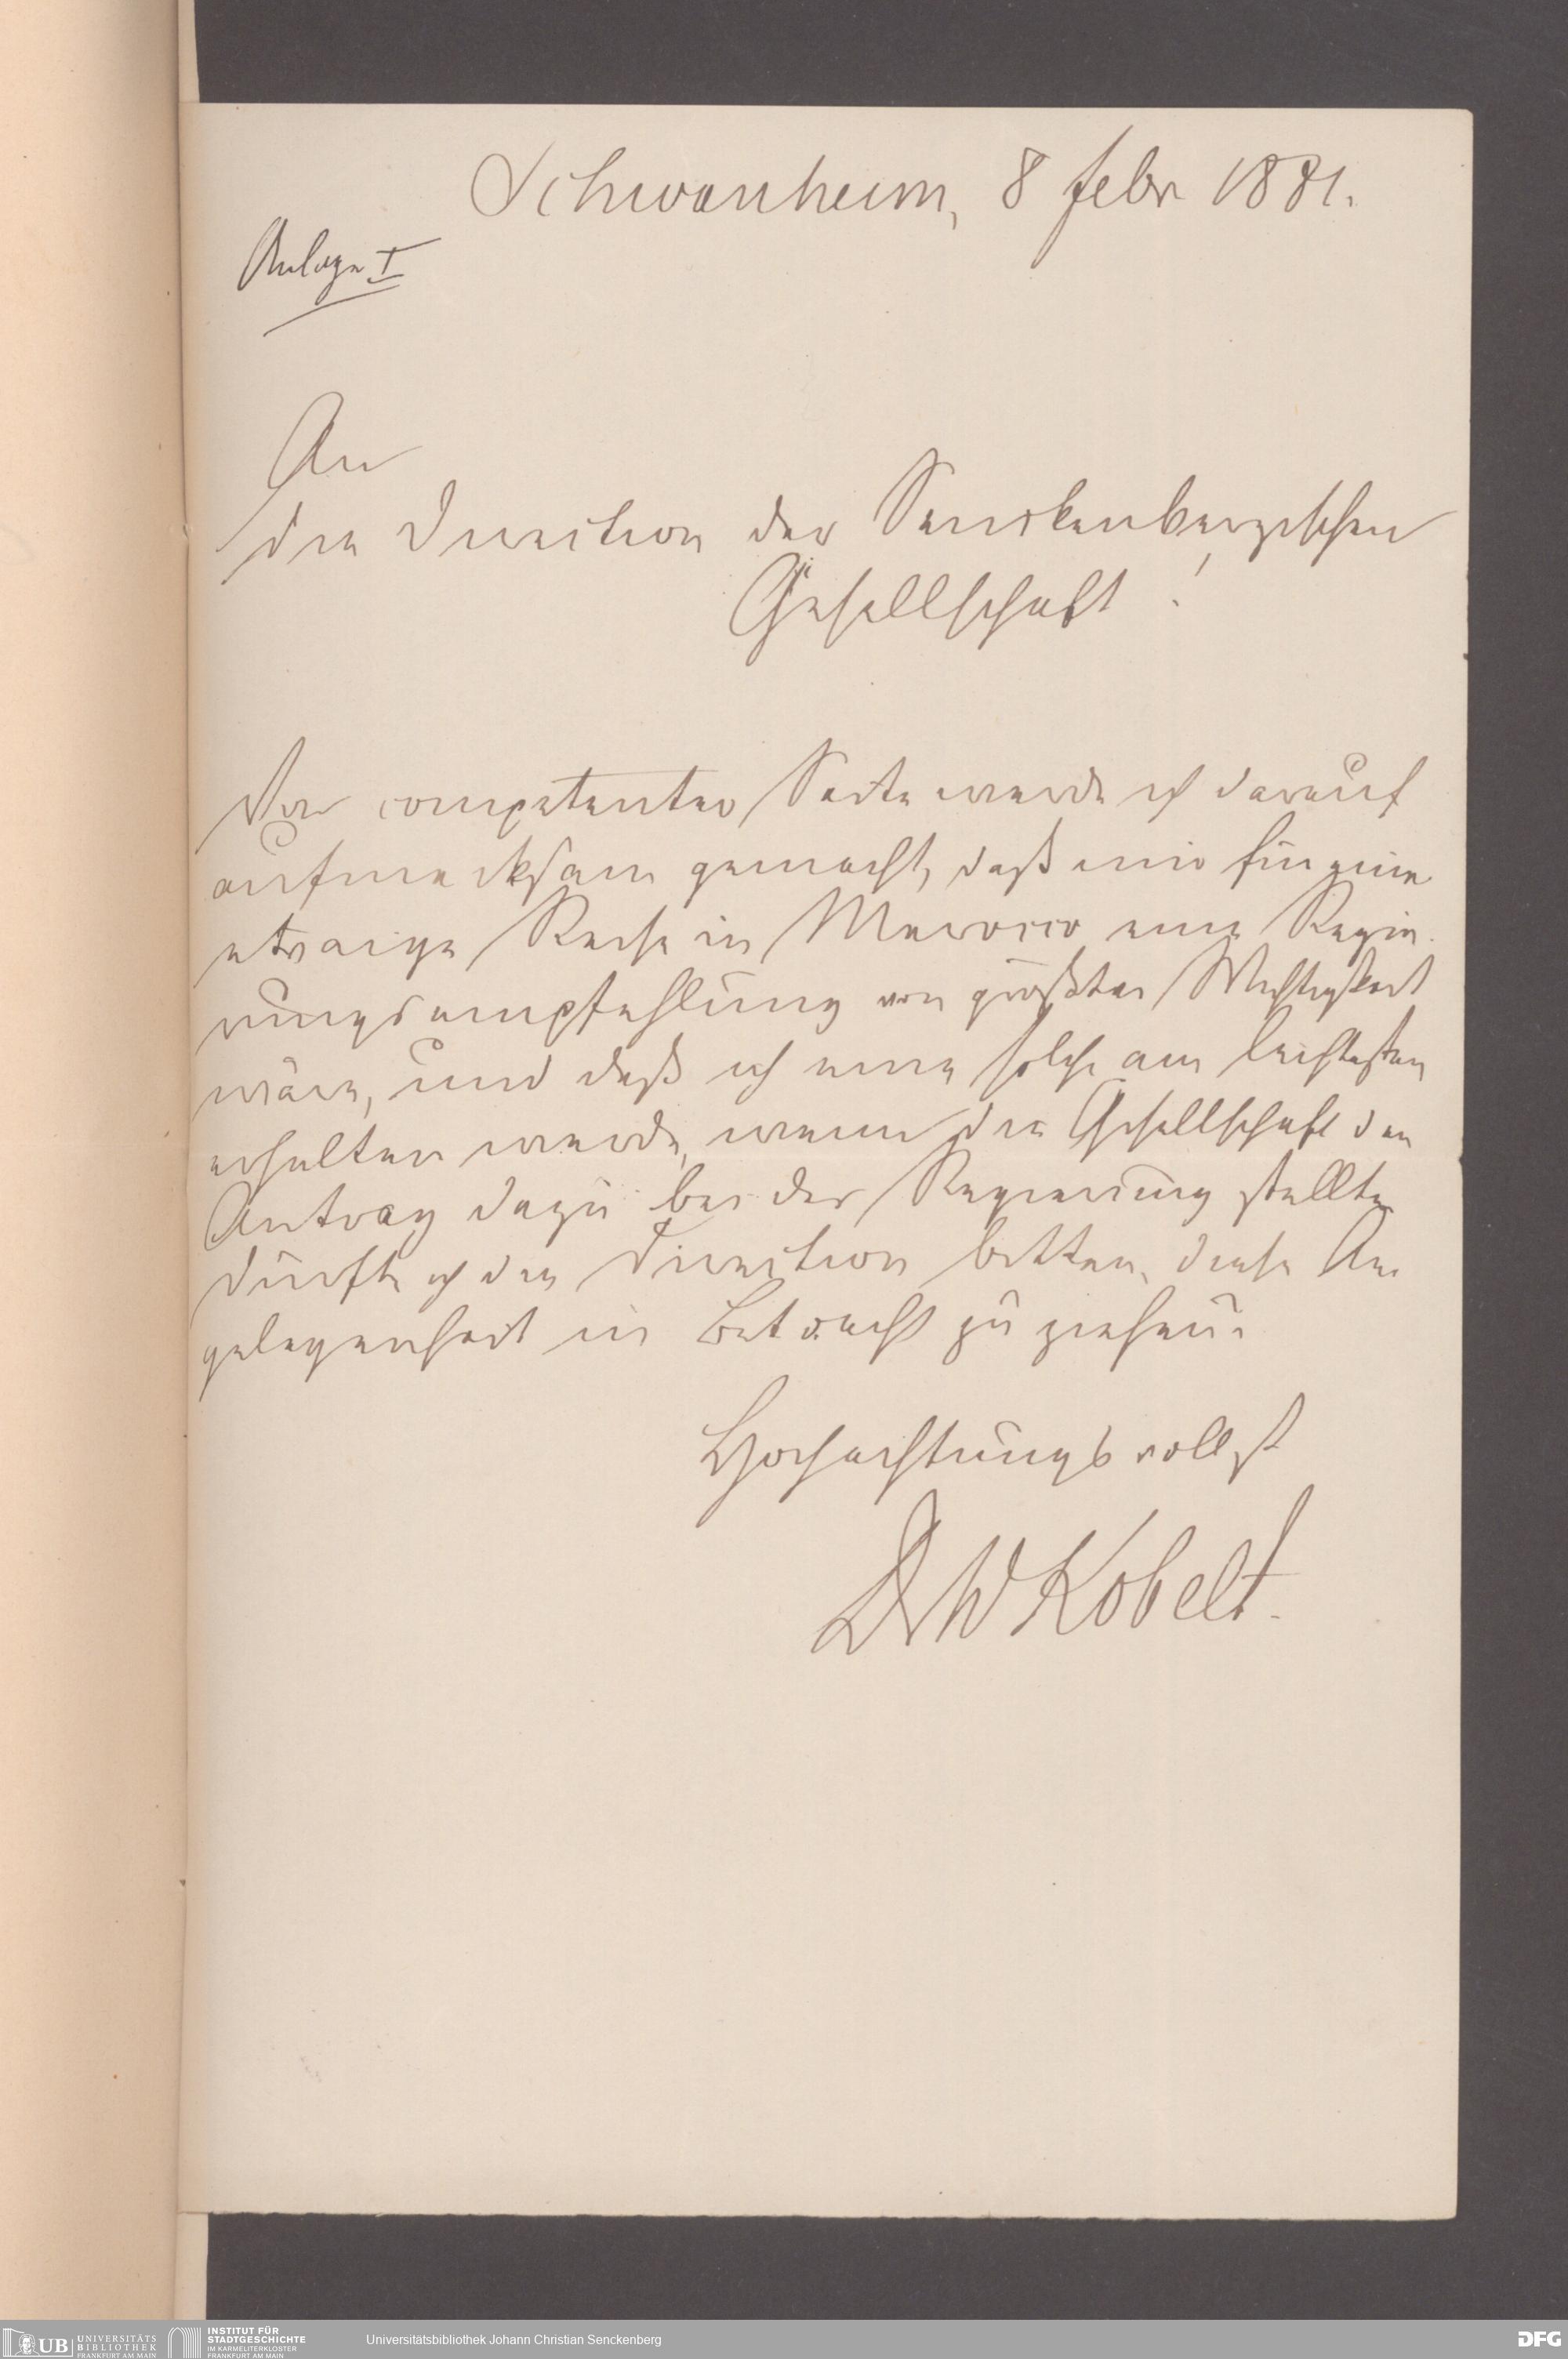 Schwanheim, 8 Febr 1881.
Anlage I
An
die Direction der Senckenbergischen
Gesellschaft!
Von competenter Seite werde ich darauf
aufmerksam gemacht, daß mir für eine
etwaige Reise in Marocco eine Regie-
rungsempfehlung von größter Wichtigkeit
wäre, und daß ich eine solche am leichtesten
erhalten werde, wenn die Gesellschaft den
Antrag dazu bei der Regierung stellte
dürfte ich die Direction bitten, diese An
gelegenheit in Betracht zu ziehen.
Hochachtungsvollst
Dr W Kobelt.
UB UNIVERSITÄTS
BIBLIOTHEK
FRANKFURT AM MAIN
INSTITUT FÜR
STADTGESCHICHTE
IM KARMELITERKLOSTER
FRANKFURT AM MAIN
Universitätsbibliothek Johann Christian Senckenberg
DFG